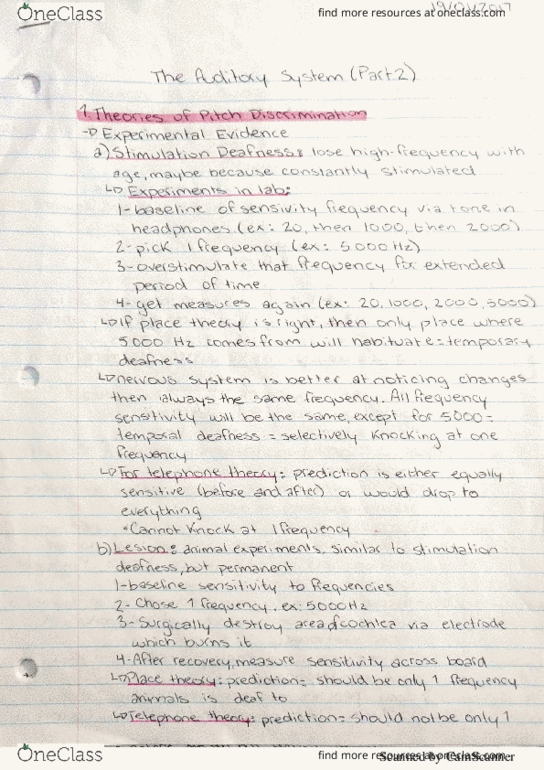 OneClass
find more resources at oneclass.com
The Auditory System (Part 2)
1. Theories of Pitch Discrimination
Experimental Evidence
a) Stimulation Deafness: lose high-frequency with
age, maybe because constantly stimulated
Experiments in lab:
1- baseline of sensivity frequency via tone in
headphones (ex: 20, then 1000, then 2000)
2- pick 1 frequency (ex: 5000 Hz)
3- overstimulate that frequency for extended
period of time
4- get measures again (ex: 20, 1000, 2000, 5000)
If place theory is right, then only place where
5000 Hz comes from will habituate = temporary
deafness
nervous system is better at noticing changes
then always the same frequency. All frequency
sensitivity will be the same, except for 5000 =
temporal deafness = selectively knocking at one
frequency
For telephone theory: prediction is either equally
sensitive (before and after) or would drop to
everything
*Cannot knock at 1 frequency
b) Lesion: animal experiments, similar to stimulation
deafness, but permanent
1- baseline sensitivity to frequencies
2- Chose 1 frequency, ex: 5000Hz
3- Surgically destroy area of cochlea via electrode
which burns it
4- After recovery, measure sensitivity across board
Place theory: prediction = should be only 1 frequency
animals is deaf to
Telephone theory: prediction = should not be only 1
OneClass
find more resources at oneclass.com
Scanned by CamScanner